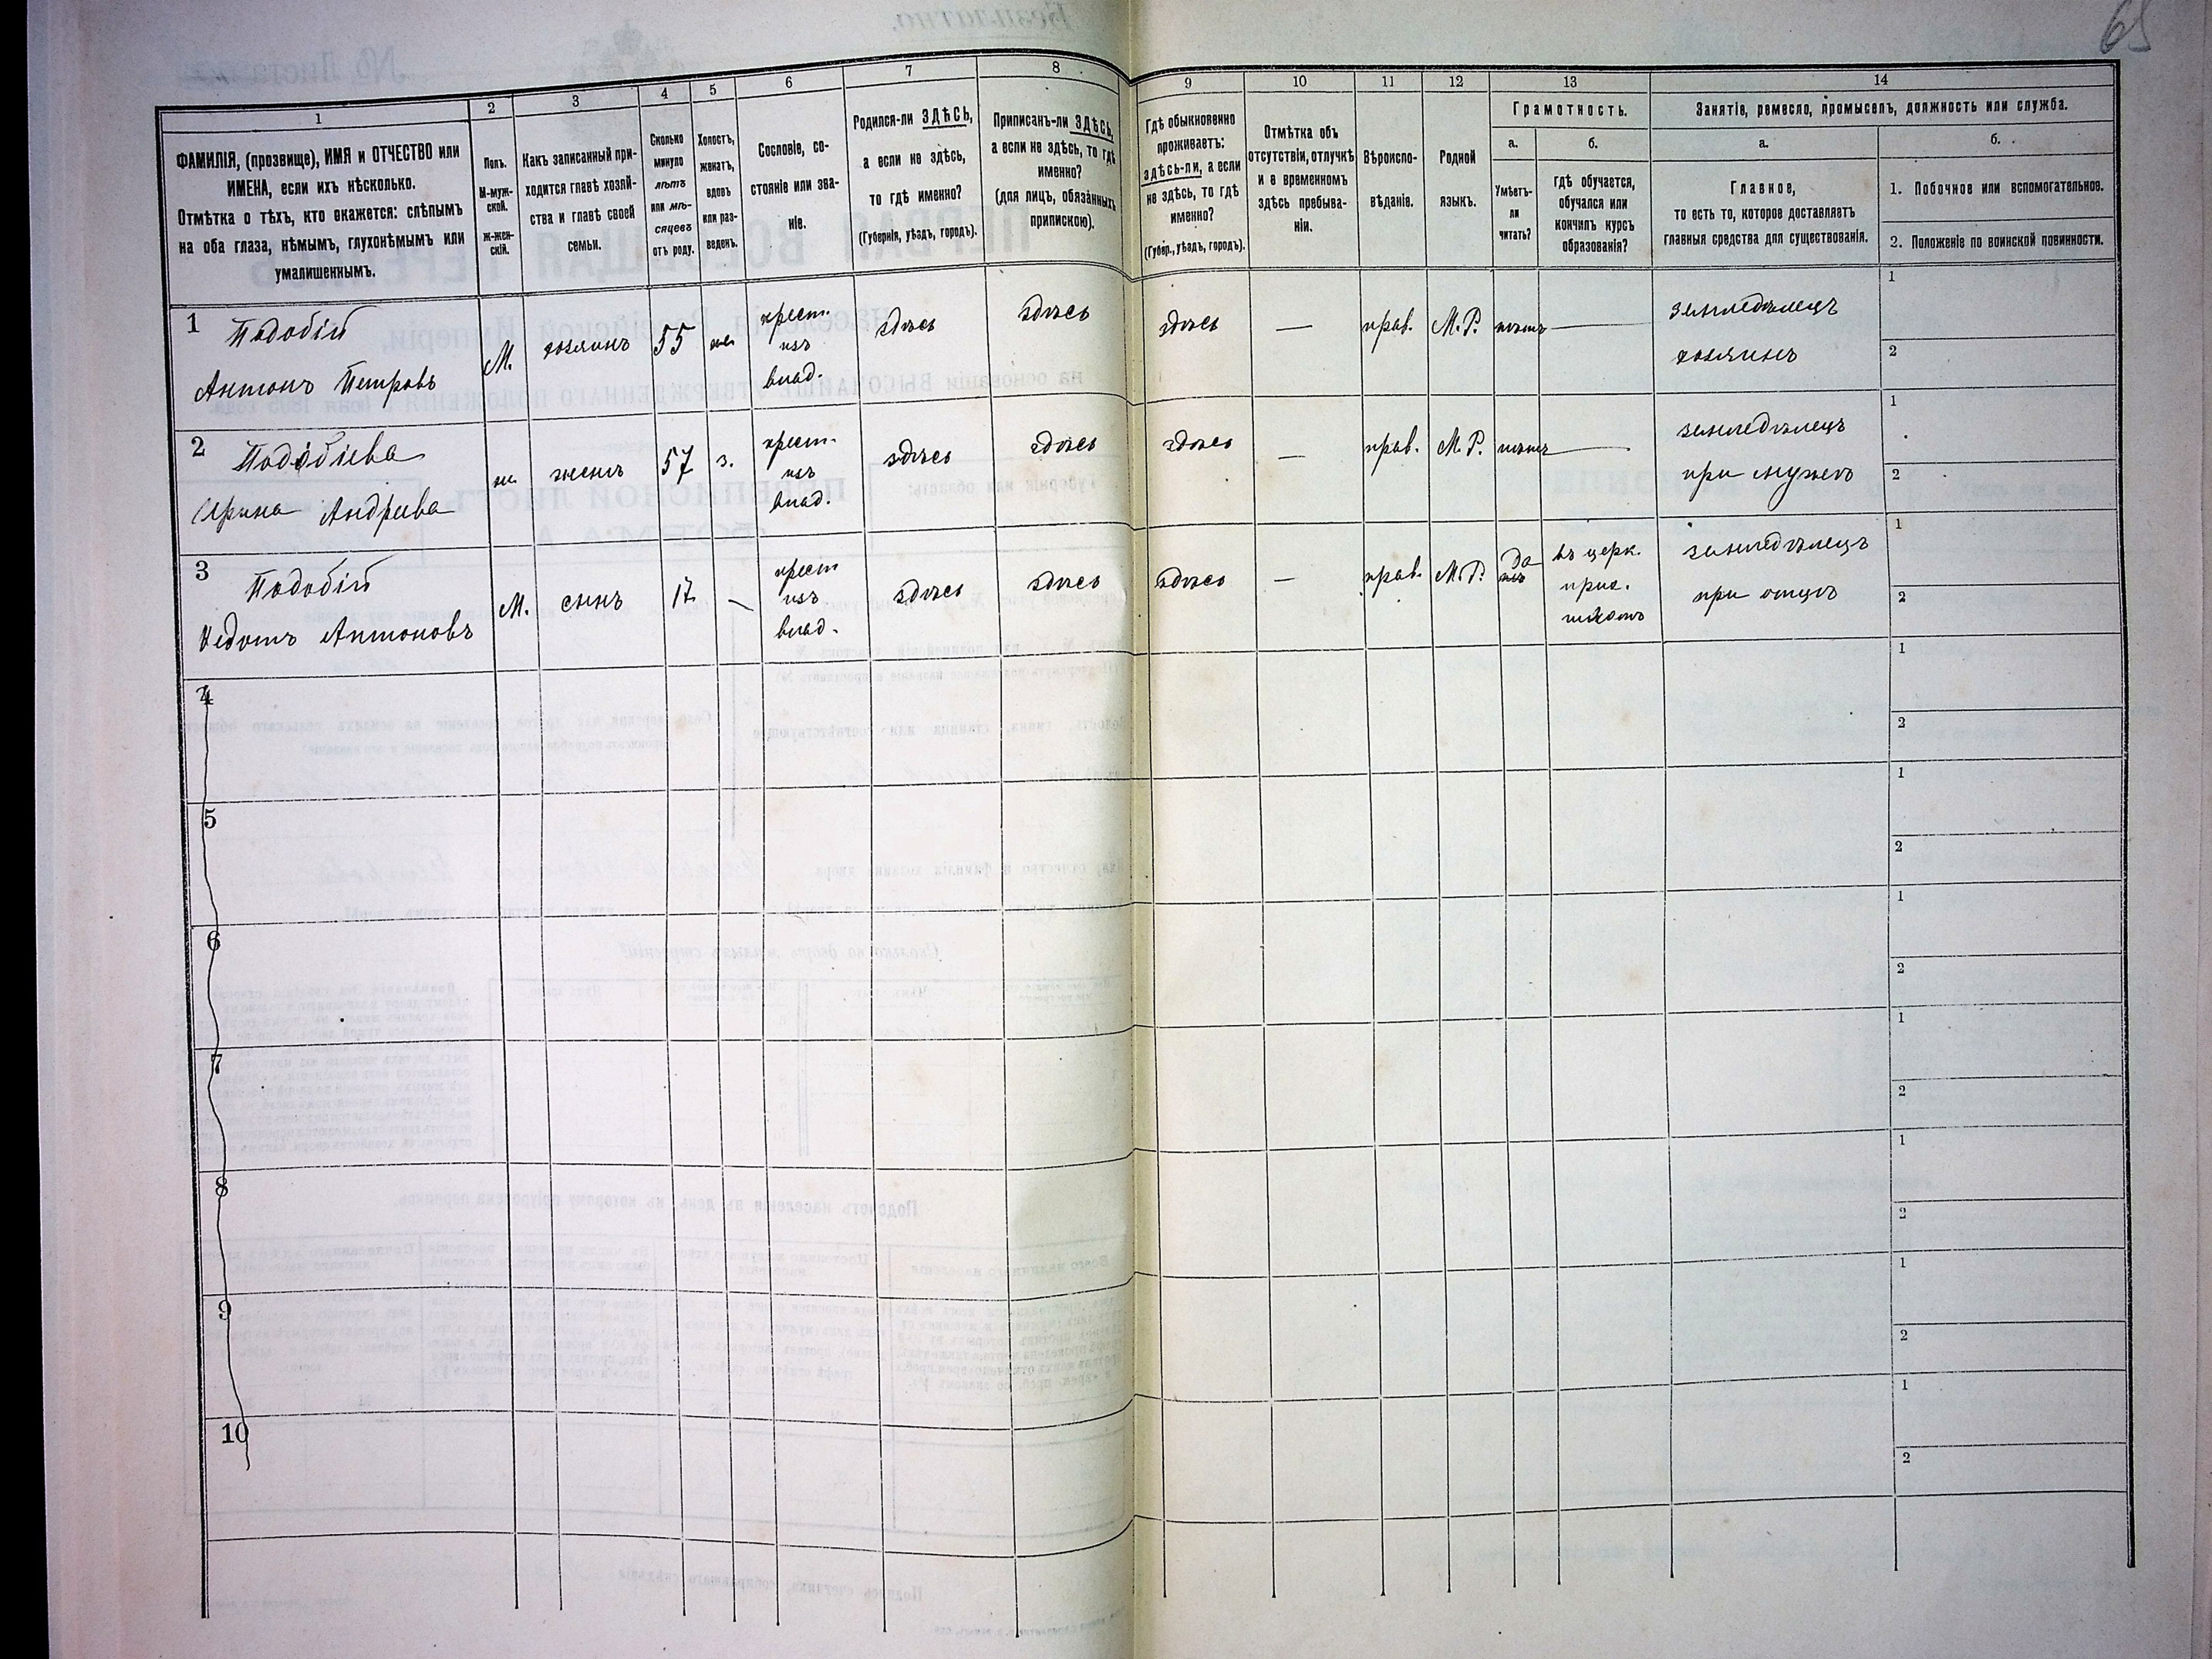 65
1
2
3
4
5
6
7
8
9
10
11
12
13
14
ФАМИЛІЯ, (прозвище), ИМЯ и ОТЧЕСТВО или
ИМЕНА, если ихъ нѣсколько.
Отмѣтка о тѣхъ, кто окажется: слѣпымъ
на оба глаза, нѣмымъ, глухонѣмымъ или
умалишеннымъ.
Полъ.
М-муж-
ской.
ж-жен-
скій.
Какъ записанный при-
ходится главѣ хозяй-
ства и главѣ своей
семьи.
Сколько
минуло
лѣтъ
или мѣ-
сяцевъ
отъ роду.
Холостъ,
женатъ,
вдовъ
или раз-
веденъ.
Сословіе, со-
стояніе или зва-
ніе.
Родился-ли ЗДѢСЬ,
а если не здѣсь,
то гдѣ именно?
(Губернія, уѣздъ, городъ).
Приписанъ-ли ЗДѢСЬ,
а если не здѣсь, то гдѣ
именно?
(для лицъ, обязанныхъ
припискою).
Гдѣ обыкновенно
проживаетъ:
здѣсь-ли, а если
не здѣсь, то гдѣ
именно?
(Губер., уѣздъ, городъ).
Отмѣтка объ
отсутствіи, отлучкѣ
и о временномъ
здѣсь пребыва-
ніи.
Вѣроиспо-
вѣданіе.
Родной
языкъ.
Грамотность.
а.
Умѣетъ-
ли
читать?
б.
гдѣ обучается,
обучался или
кончилъ курсъ
образованія?
Занятіе, ремесло, промыселъ, должность или служба.
а.
Главное,
то есть то, которое доставляетъ
главныя средства для существованія.
б.
1. Побочное или вспомогательное.
2. Положеніе по воинской повинности.
1
Подобій
Антонъ Петровъ
М.
хозяинъ
55
же
крест.
изъ
влад.
здѣсь
здѣсь
здѣсь
—
прав.
М. Р.
нѣтъ
—
земледѣлецъ
хозяинъ
1
2
2
Подобіева
Ирина Андреева
ж.
жена
57
з.
крест.
изъ
влад.
здѣсь
здѣсь
здѣсь
—
прав.
М. Р.
нѣтъ
—
земледѣлецъ
при мужѣ
1
2
3
Подобій
Федотъ Антоновъ
М.
сынъ
17
—
крест
изъ
влад.
здѣсь
здѣсь
здѣсь
—
прав.
М. Р.
Да
въ церк.
прих.
земледѣлецъ
при отцѣ
1
2
4
1
2
5
1
2
6
1
2
7
1
2
8
1
2
9
1
2
10
1
2